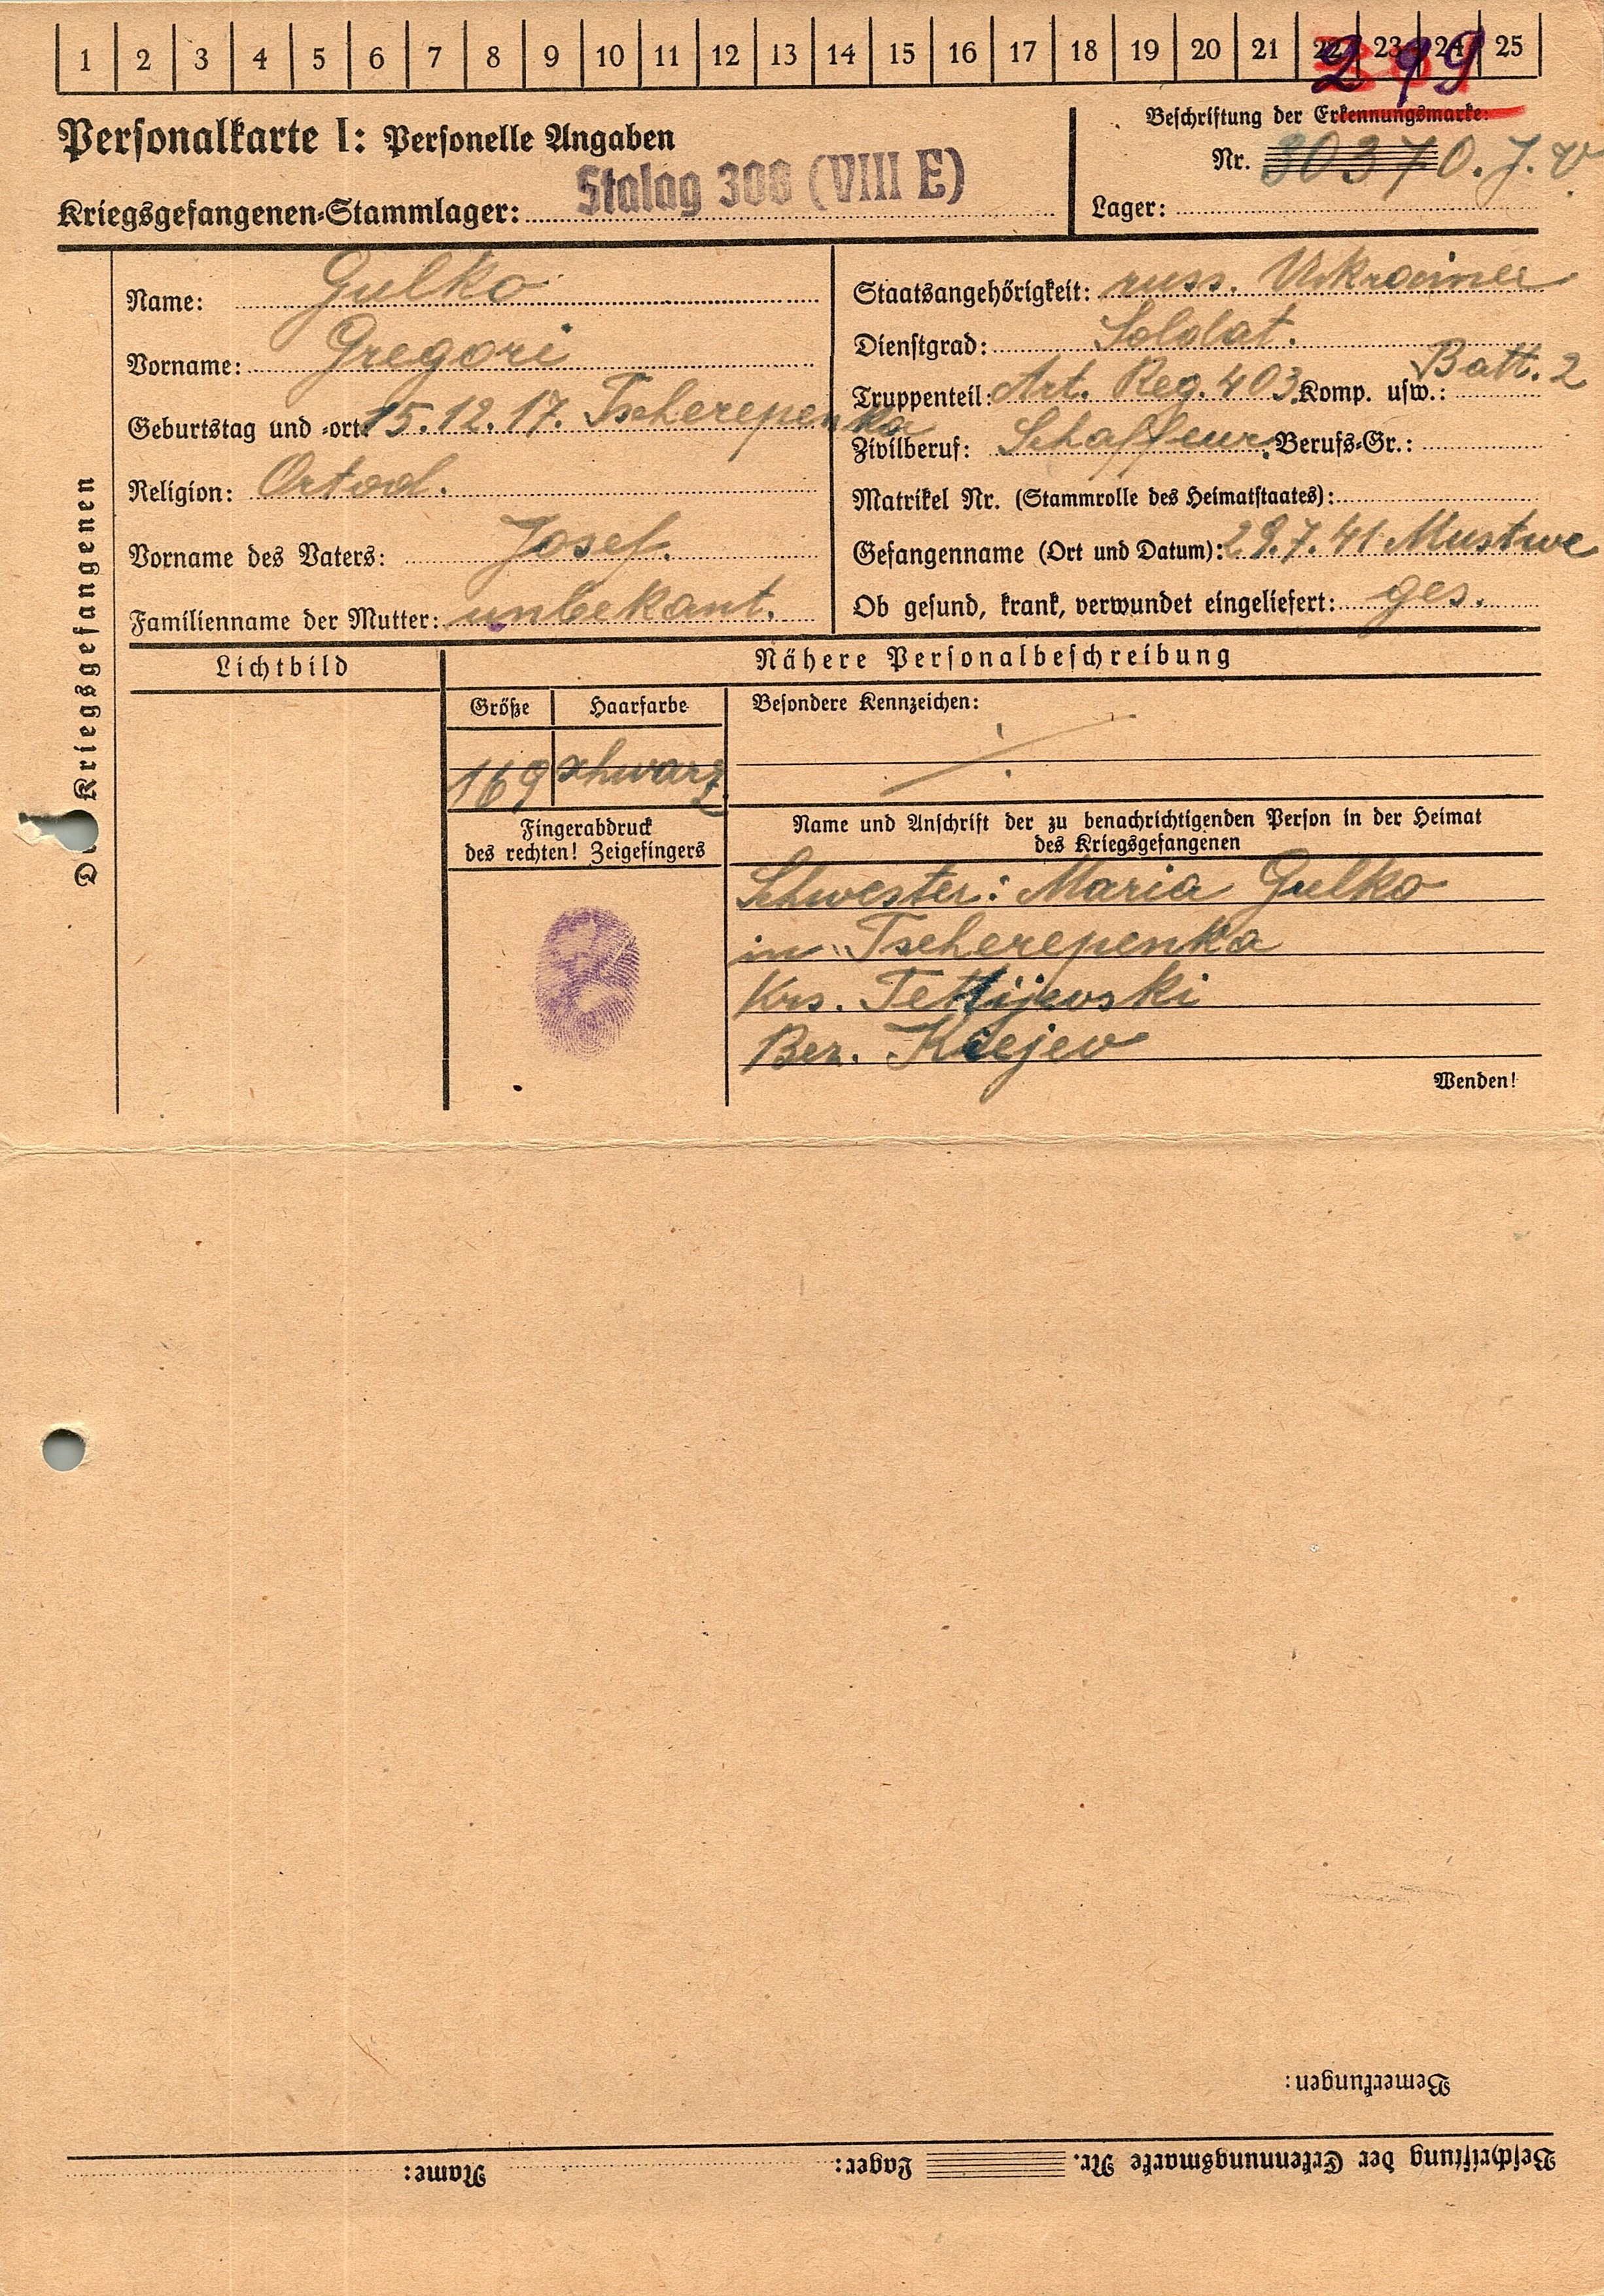 1 2 3 4 5 6 7 8 9 10 11 12 13 14 15 16 17 18 19 20 21 22 23 24 25
299
Personalkarte I: Personelle Angaben
Beschriftung der Erkennungsmarke:
Nr. 30370.
Kriegsgefangenen-Stammlager: Stalag 308 (VIII E)
Lager:
Kriegsgefangenen
Name: Gulko
Vorname: Gregori
Geburtstag und -ort: 15.12.17. Tscherepenka
Religion: Ortod.
Vorname des Vaters: Josef.
Familienname der Mutter: unbekant.
Staatsangehörigkeit: russ. Ukrainer
Dienstgrad: Soldat.
Truppenteil: Art. Reg. 403. Komp. usw.: Batt. 2
Zivilberuf: Schaffeur. Berufs-Gr.:
Matrikel Nr. (Stammrolle des Heimatstaates):
Gefangenname (Ort und Datum): 29.7.41 Mustwe
Ob gesund, krank, verwundet eingeliefert: ges.
Lichtbild
Nähere Personalbeschreibung
Größe Haarfarbe
169 schwarz
Besondere Kennzeichen:
Fingerabdruck
des rechten! Zeigefingers
Name und Anschrift der zu benachrichtigenden Person in der Heimat
des Kriegsgefangenen
Schwester: Maria Gulko
in Tscherepenka
Krs. Tettijewski
Bez. Kiejew
Wenden!
Bemerkungen:
Beschriftung der Erkennungsmarke Nr. Lager: Name: